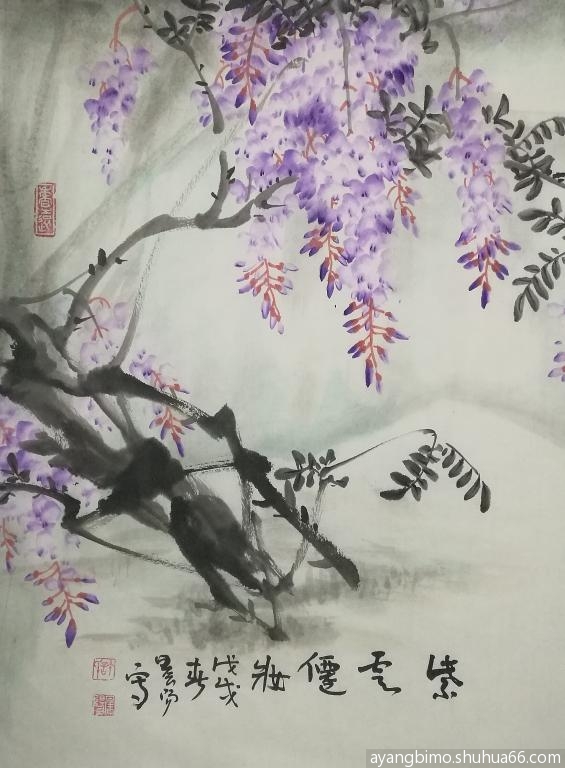 紫云僊妝
戊戌
春
写
ayangbimo.shuhua66.com